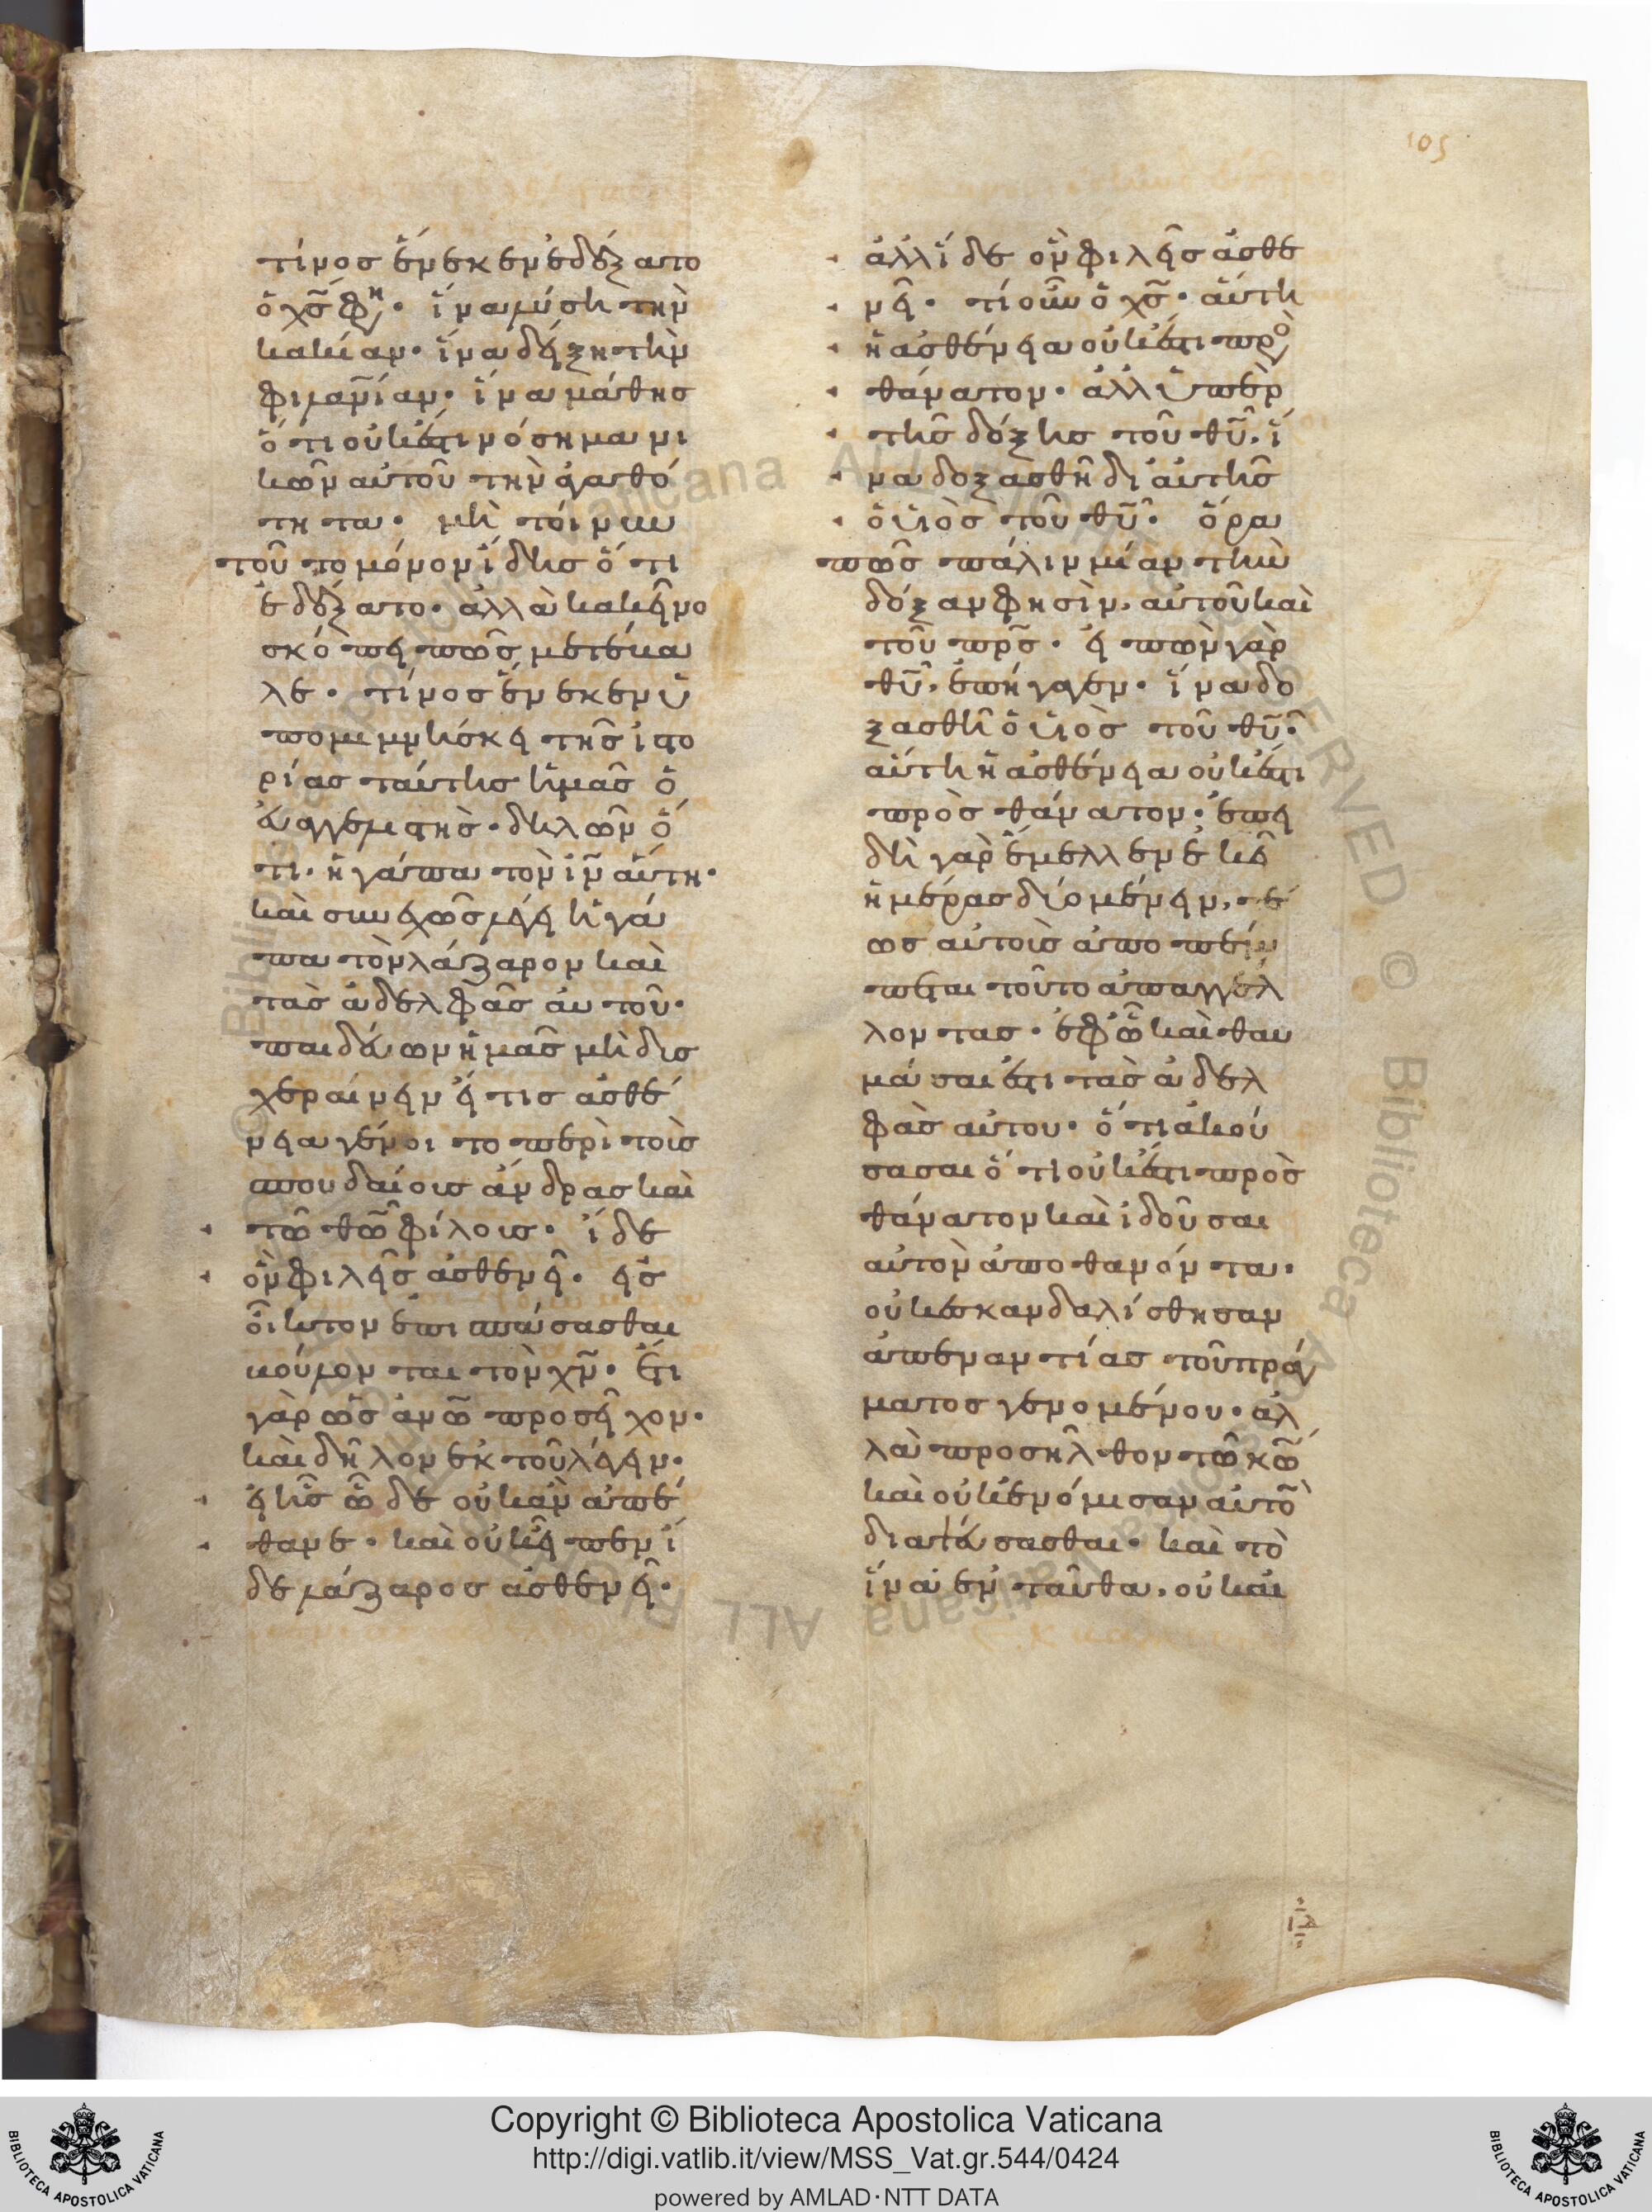 105
τίνοσ ἕνεκεν ἐδέξατο
ὁ χ̅σ̅ φη· ἵνα λύση τὴν
κακίαν· ἵνα δείξη τὴν
φιλαν̅ίαν· ἵνα μάθησ
ὅτι οὐκ ἔστι νόσημα νι
κῶν αὐτοῦ τὴν ἀγαθό
τητα· μὴ τοίνυν
τοῦτο μόνον ἴδησ ὅτι
ἐδέξατο· ἀλλὰ κακεῖνο
σκόπει πῶσ μετεκα
λε· τίνοσ ἕνεκεν ὑ
πομιμνήσκει τῆσ ἱστο
ρίασ ταύτησ ἡμᾶσ ὁ
εὐαγγελιστὴσ· δηλῶν ὅ
τι· ἠγάπα τὸν ἰ̅ν̅ αὕτη·
καὶ συνεχῶσ λέγει ἠγά
πα τὸν λάζαρον καὶ
τὰσ ἀδελφὰσ αυτοῦ·
παιδεύων ἡμᾶσ μὴ δισ
χεραίνειν εἴ τισ ἀσθέ
νεια γένοιτο περὶ τοὺσ
σπουδαίουσ ἄνδρασ καὶ
τῶ θ̅ω̅ φίλουσ· ἴδε
ὃν φιλεῖσ ἀσθενεῖ· εἰσ
οἶκτον ἐπισπάσασθαι
βούλονται τὸν χ̅ν̅· ἔτι
γὰρ ὡσ ἀν̅ω̅ προσεῖχον·
καὶ δῆλον ἐκ τοῦ λέγειν·
εἰ ἦσ ὧδε οὐκ ἂν ἀπέ
θανε· καὶ οὐκ εἶπεν ἴ
δε λάζαροσ ἀσθενεῖ·
ἀλλ ἴδε ὃν φιλεῖσ ἀσθε
νεῖ· τί οὖν ὁ χ̅σ̅· αὕτη
ἡ ἀσθένεια οὐκ ἔστι πρὸ
θάνατον· ἀλλ ὑπὲρ
τῆσ δόξησ τοῦ θ̅υ̅· ἵ
να δοξασθῆ δι αὐτῆσ
ὁ υἱὸσ τοῦ θ̅υ̅· ὅρα
πῶσ πάλιν μίαν τὴν
δόξαν φησὶν, αὐτοῦ καὶ
τοῦ π̅ρ̅σ̅· εἰπὼν γὰρ
θ̅υ̅, ἐπήγαγεν· ἵνα δο
ξασθῆ ὁ υἱὸσ τοῦ θ̅υ̅·
αὕτη ἡ ἀσθένεια οὐκ ἔστι
πρὸσ θάνατον· ἐπει
δὴ γὰρ ἔμελλεν ἐκεῖ
ἡμέρασ δύο μένειν, τέ
ωσ αὐτοὺσ ἀποπέμ
πεται τοῦτο ἀπαγγέλ
λοντασ· ἐφ ὧ καὶ θαυ
μάσαι ἔστι τὰσ ἀδελ
φὰσ αὐτου· ὅτι ἀκού
σασαι ὅτι οὐκ ἔστι πρὸσ
θάνατον καὶ ἰδοῦσαι
αὐτὸν ἀποθανόντα·
οὐκ ἐσκανδαλίσθησαν
ἀπεναντίασ τοῦ πράγ
ματοσ γενομένου· ἀλ
λὰ προσῆλθον τῶ κ̅ω̅
καὶ οὐκ ἐνόμισαν αὐτὸ
διαψεύσασθαι· καὶ τὸ
ἵνα ἐν ταῦθα, οὐκ αἰ
Copyright © Biblioteca Apostolica Vaticana
http://digi.vatlib.it/view/MSS_Vat.gr.544/0424
powered by AMLAD·NTT DATA